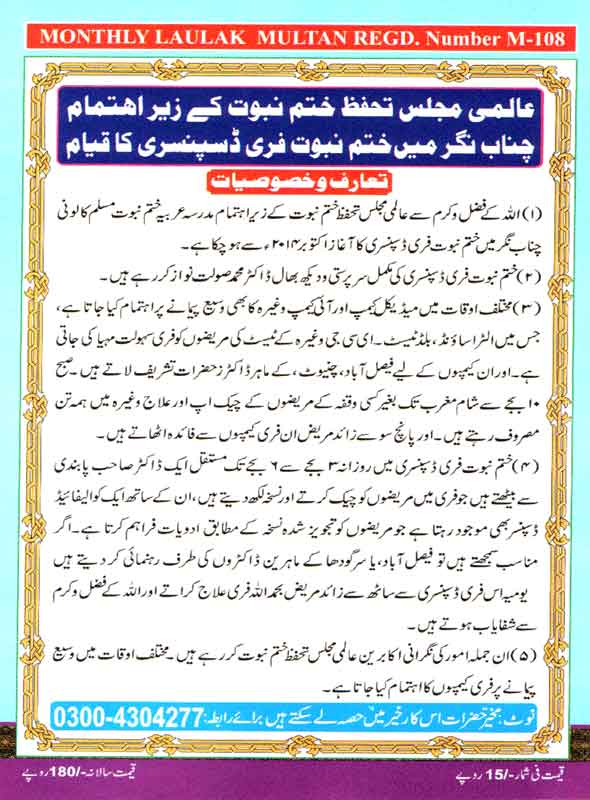 MONTHLY LAULAK MULTAN REGD. Number M-108
عالمی مجلس تحفظ ختم نبوت کے زیر اہتمام
چناب نگر میں ختم نبوت فری ڈسپنسری کا قیام
تعارف و خصوصیات
(۱) اللہ کے فضل و کرم سے عالمی مجلس تحفظ ختم نبوت کے زیر اہتمام مدرسہ عربیہ ختم نبوت مسلم کالونی
چناب نگر میں ختم نبوت فری ڈسپنسری کا آغاز اکتوبر ۲۰۱۴ء سے ہو چکا ہے۔
(۲) ختم نبوت فری ڈسپنسری کی مکمل سرپرستی و دیکھ بھال ڈاکٹر محمد صولت نواز کر رہے ہیں۔
(۳) مختلف اوقات میں میڈیکل کیمپ اور آئی کیمپ وغیرہ کا بھی وسیع پیمانے پر اہتمام کیا جاتا ہے،
جس میں الٹرا ساؤنڈ، بلڈ ٹیسٹ۔ ای سی جی وغیرہ کے ٹیسٹ کی مریضوں کو فری سہولت مہیا کی جاتی
ہے۔ اور ان کیمپوں کے لیے فیصل آباد، چنیوٹ، کے ماہر ڈاکٹرز حضرات تشریف لاتے ہیں۔ صبح
۱۰ بجے سے شام مغرب تک بغیر کسی وقفہ کے مریضوں کے چیک اپ اور علاج وغیرہ میں ہمہ تن
مصروف رہتے ہیں۔ اور پانچ سو سے زائد مریض ان فری کیمپوں سے فائدہ اٹھاتے ہیں۔
(۴) ختم نبوت فری ڈسپنسری میں روزانہ ۳ بجے سے ۶ بجے تک مستقل ایک ڈاکٹر صاحب پابندی
سے بیٹھتے ہیں جو فری میں مریضوں کو چیک کرتے اور نسخہ لکھ دیتے ہیں، ان کے ساتھ ایک کوالیفائیڈ
ڈسپنسر بھی موجود رہتا ہے جو مریضوں کو تجویز شدہ نسخہ کے مطابق ادویات فراہم کرتا ہے۔ اگر
مناسب سمجھتے ہیں تو فیصل آباد، یا سرگودھا کے ماہرین ڈاکٹروں کی طرف رہنمائی کر دیتے ہیں
یومیہ اس فری ڈسپنسری سے ساٹھ سے زائد مریض بحمد اللہ فری علاج کراتے اور اللہ کے فضل و کرم
سے شفایاب ہوتے ہیں۔
(۵) ان جملہ امور کی نگرانی اکابرین عالمی مجلس تحفظ ختم نبوت کر رہے ہیں۔ مختلف اوقات میں وسیع
پیمانے پر فری کیمپوں کا اہتمام کیا جاتا ہے۔
نوٹ: مخیر حضرات اس کار خیر میں حصہ لے سکتے ہیں برائے رابطہ: 0300-4304277
قیمت فی شمارہ -/15 روپے
قیمت سالانہ -/180 روپے